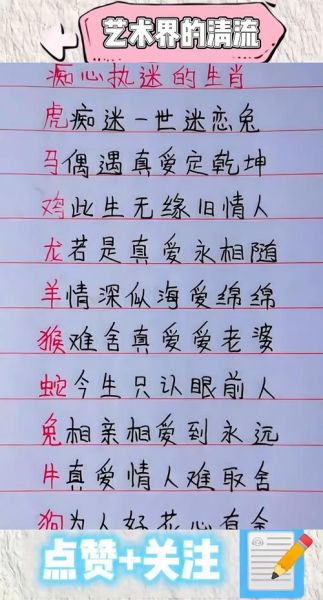 艺术界的清流
痴心执迷的生肖
虎痴迷一世迷恋兔
马偶遇真爱定乾坤
鸡此生无缘旧情人
龙若是真爱永相随
羊情深似海爱绵绵
猴难舍真爱爱老婆
蛇今生只认眼前人
兔相亲相爱到永远
牛真爱情人难取舍
狗为人好花心有余
点赞+关注